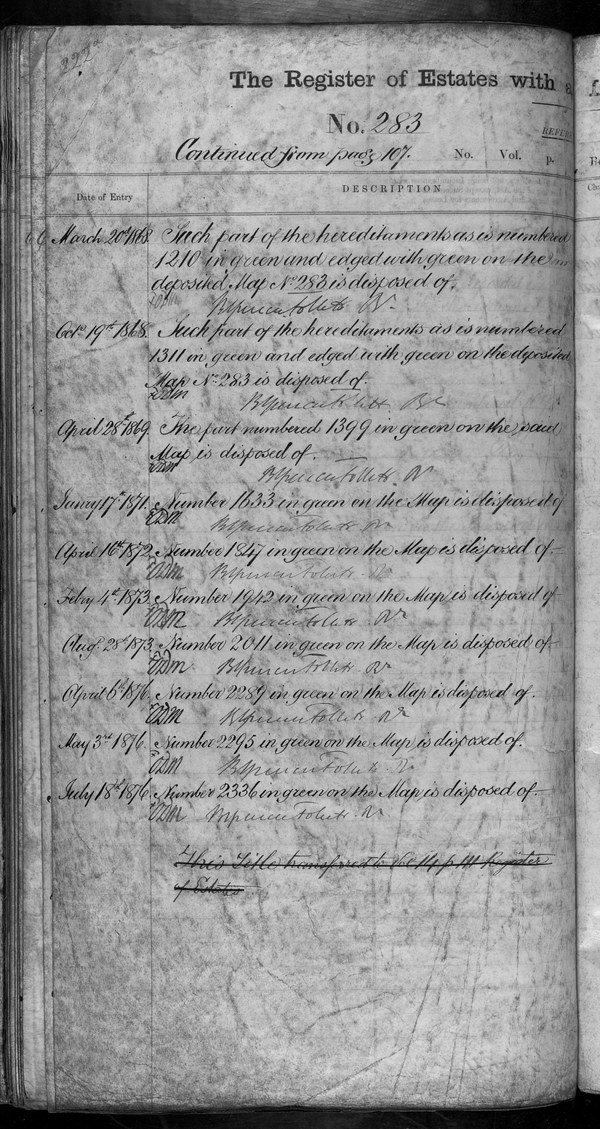 227a
The Register of Estates with a
No. 283
Continued from page 107.
No. Vol. p.
Date of Entry
DESCRIPTION
March 20th 1868. Such part of the hereditaments as is numbered
1210 in green and edged with green on the
deposited Map No 283 is disposed of.
Brent Spencer Follett Rr
Octr 19th 1868. Such part of the hereditaments as is numbered
1311 in green and edged with green on the deposited
Map No 283 is disposed of.
April 28th 1869. The part numbered 1399 in green on the said
Map is disposed of.
Janry 17th 1871. Number 1633 in green on the Map is disposed of
April 16th 1872. Number 1847 in green on the Map is disposed of
Febry 4th 1873. Number 1942 in green on the Map is disposed of
Augt 28th 1873. Number 2011 in green on the Map is disposed of
April 6th 1876. Number 2289 in green on the Map is disposed of.
May 3rd 1876. Number 2295 in green on the Map is disposed of.
July 18th 1876. Number 2336 in green on the Map is disposed of
This Title transferred to Vol 14 p 141 Register
of Estates